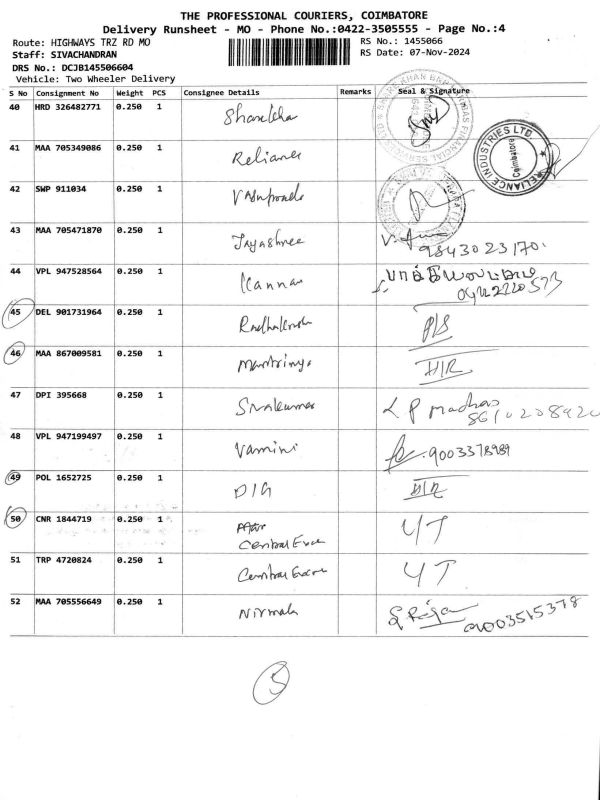 THE PROFESSIONAL COURIERS, COIMBATORE
Delivery Runsheet - MO - Phone No.:0422-3505555 - Page No.:4
Route: HIGHWAYS TRZ RD MO
RS No.: 1455066
Staff: SIVACHANDRAN
RS Date: 07-Nov-2024
DRS No.: DCJB145506604
Vehicle: Two Wheeler Delivery
S No Consignment No Weight PCS Consignee Details Remarks Seal & Signature
40 HRD 326482771 0.250 1
41 MAA 705349086 0.250 1 Reliance
RELIANCE INDUSTRIES LTD. Coimbatore
42 SWP 911034 0.250 1
43 MAA 705471870 0.250 1 Jayashree
9843023170.
44 VPL 947528564 0.250 1 Kannan
0422220573
45 DEL 901731964 0.250 1
46 MAA 867009581 0.250 1 H/R
47 DPI 395668 0.250 1 Sivakumar
8610208920
48 VPL 947199497 0.250 1 Vamini
9003378989
49 POL 1652725 0.250 1
50 CNR 1844719 0.250 1
Central 4T
51 TRP 4720824 0.250 1 Central 4T
52 MAA 705556649 0.250 1 Nirmala
9003515378
5